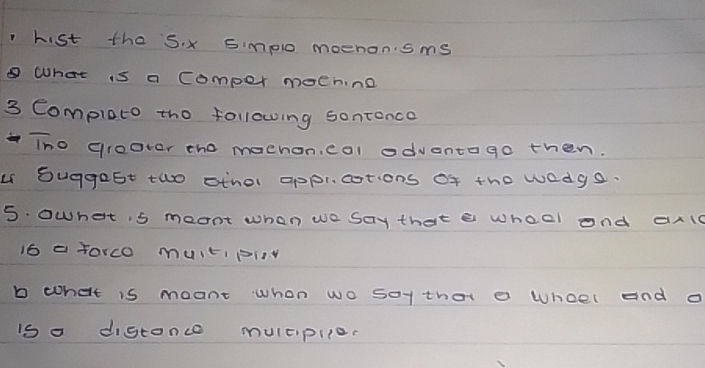 1 List the six simple mechanisms
2 What is a Compex machine
3 Complete the following sentence
The greater the mechanical advantage then.
4 Suggest two other applications of the wedge.
5. a what is meant when we say that a wheel and axle
is a force multiplier
b what is meant when we say that a wheel and a
is a distance multiplier